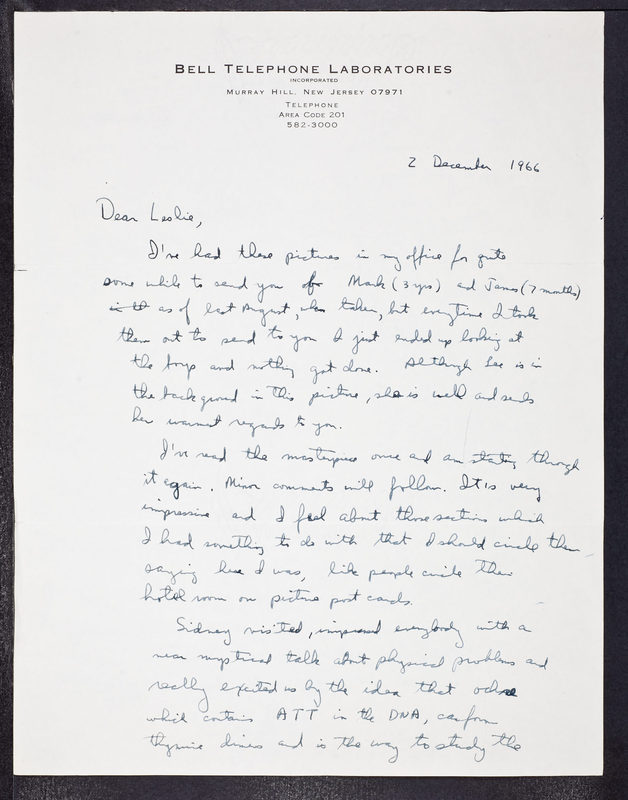 BELL TELEPHONE LABORATORIES
INCORPORATED
MURRAY HILL, NEW JERSEY 07971
TELEPHONE
AREA CODE 201
582-3000
2 December 1966
Dear Leslie,
I've had these pictures in my office for quite
some while to send you of Mark (3 yrs) and James (7 months)
as of last August, when taken, but everytime I took
them out to send to you I just ended up looking at
the boys and nothing got done. Although Lee is in
the background in this picture, she is well and sends
her warmest regards to you.
I've read the masterpiece once and am starting through
it again. Minor comments will follow. It is very
impressive and I feel about those sections which
I had something to do with that I should circle them
saying here I was, like people circle their
hotel room on picture post cards.
Sidney visited, impressed everybody with a
near mystical talk about physical problems and
really excited us by the idea that ochre
which contains ATT in the DNA, can form
thymine dimers and is the way to study the